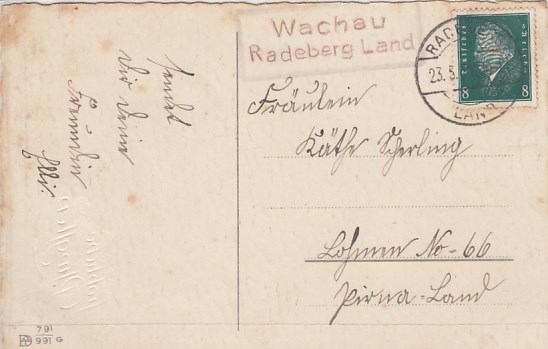 sendet
Dir Deine
Freundin
Elli.
Wachau
Radeberg Land
RADE
23.3.
LAND
8 8
Fräulein
Käthe Scherling
Lohmen No-66
Pirna-Land
791
991 G